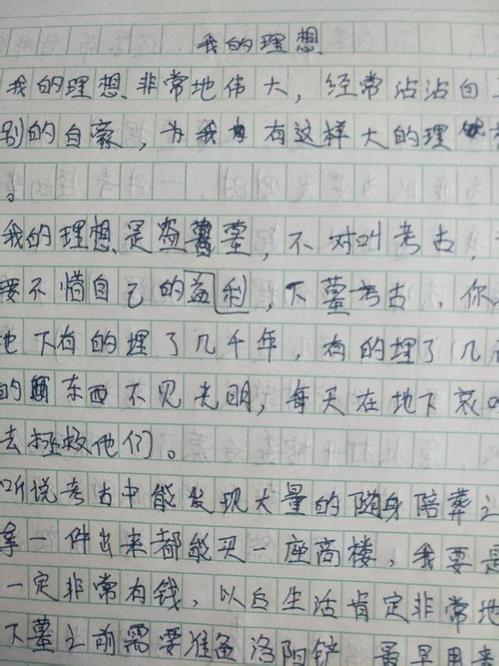 我的理想
我的理想非常地伟大，经常沾沾自
别的自豪，为我有这样大的理
。
我的理想是盗墓，不对叫考古，
要不惜自己的益利，下墓考古，你
地下有的埋了几千年，有的埋了几
的东西不见光明，每天在地下哀
去拯救他们。
听说考古中能发现大量的随身陪葬
拿一件出来都能买一座高楼，我要是
一定非常有钱，以后生活肯定非常地
下墓之前需要准备洛阳铲，最是用来